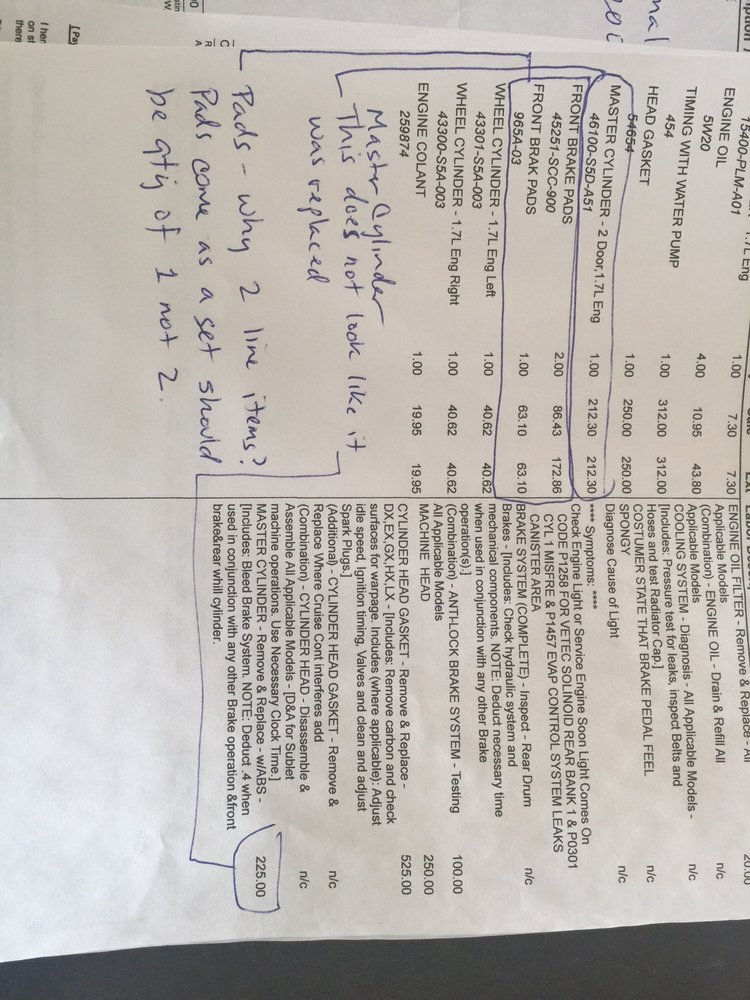 15400-PLM-A01
ENGINE OIL 1.00 7.30 7.30
5W20
TIMING WITH WATER PUMP 4.00 10.95 43.80
454
HEAD GASKET 1.00 312.00 312.00
54654 1.00 250.00 250.00
MASTER CYLINDER - 2 Door,1.7L Eng 1.00 212.30 212.30
46100-S5D-A51
FRONT BRAKE PADS 2.00 86.43 172.86
45251-SCC-900
FRONT BRAK PADS 1.00 63.10 63.10
965A-03
WHEEL CYLINDER - 1.7L Eng Left 1.00 40.62 40.62
43301-S5A-003
WHEEL CYLINDER - 1.7L Eng Right 1.00 40.62 40.62
43300-S5A-003
ENGINE COLANT 1.00 19.95 19.95
259874
Master Cylinder
This does not look like it
was replaced
Pads - why 2 line items?
Pads come as a set should
be qty of 1 not 2.
ENGINE OIL FILTER - Remove & Replace - All 20.00
Applicable Models
(Combination) - ENGINE OIL - Drain & Refill All n/c
Applicable Models
COOLING SYSTEM - Diagnosis - All Applicable Models - n/c
[Includes: Pressure test for leaks, inspect Belts and
Hoses and test Radiator Cap.]
COSTUMER STATE THAT BRAKE PEDAL FEEL n/c
SPONGY
Diagnose Cause of Light n/c
**** Symptoms: ****
Check Engine Light or Service Engine Soon Light Comes On
CODE P1258 FOR VETEC SOLINOID REAR BANK 1 & P0301
CYL 1 MISFRE & P1457 EVAP CONTROL SYSTEM LEAKS
CANISTER AREA
BRAKE SYSTEM (COMPLETE) - Inspect - Rear Drum n/c
Brakes - [Includes: Check hydraulic system and
mechanical components. NOTE: Deduct necessary time
when used in conjunction with any other Brake
operation(s).]
(Combination) - ANTI-LOCK BRAKE SYSTEM - Testing 100.00
All Applicable Models
MACHINE HEAD 250.00
CYLINDER HEAD GASKET - Remove & Replace - 525.00
DX,EX,GX,HX,LX - [Includes: Remove carbon and check
surfaces for warpage. Includes (where applicable): Adjust
idle speed, Ignition timing, Valves and clean and adjust
Spark Plugs.]
(Additional) - CYLINDER HEAD GASKET - Remove & n/c
Replace Where Cruise Cont interferes add
(Combination) - CYLINDER HEAD - Disassemble & n/c
Assemble All Applicable Models - [D&A for Sublet
machine operations. Use Necessary Clock Time.]
MASTER CYLINDER - Remove & Replace - w/ABS - 225.00
[Includes: Bleed Brake System. NOTE: Deduct .4 when
used in conjunction with any other Brake operation &front
brake&rear whill cylinder.